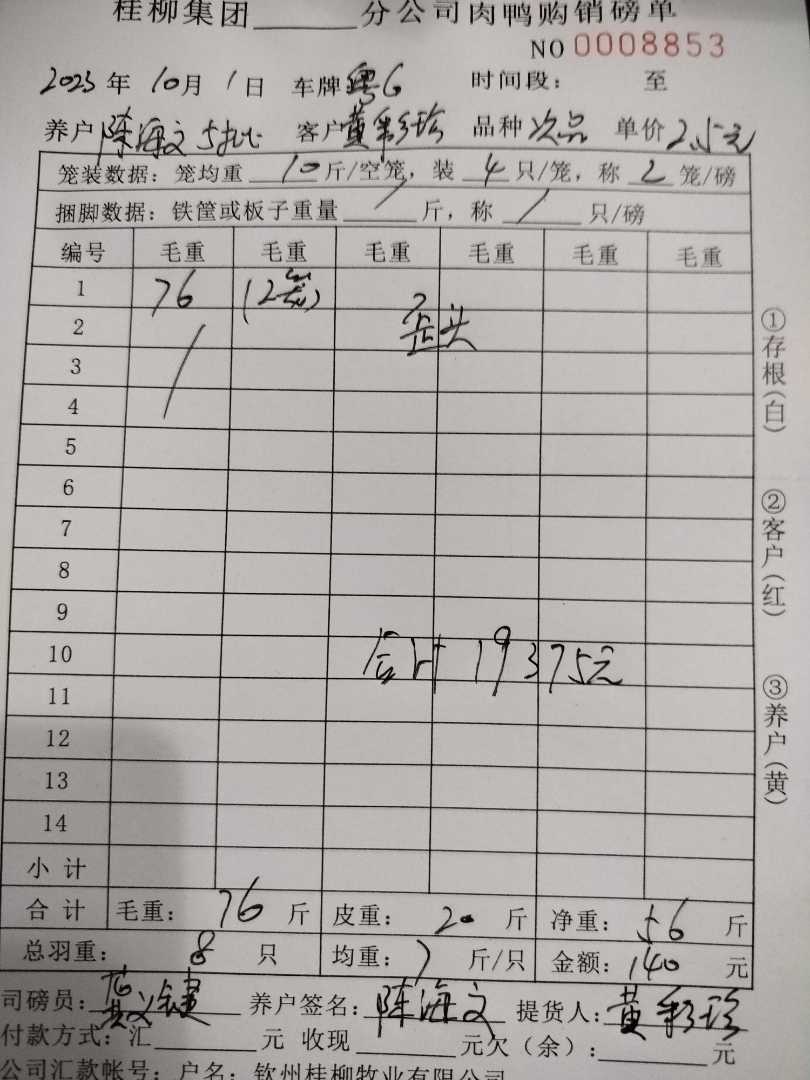 桂柳集团______分公司肉鸭购销磅单
NO 0008853
2023年 10月 1日 车牌粤G 时间段: 至
养户陈海文5批 客户黄彩珍 品种次品 单价2.5元
笼装数据:笼均重 10 斤/空笼,装 4 只/笼,称 2 笼/磅
捆脚数据:铁筐或板子重量 / 斤,称 / 只/磅
编号 毛重 毛重 毛重 毛重 毛重 毛重
1 76 (2笼)
2 歪头
3
4
5
6
7
8
9
10 合计 19375元
11
12
13
14
小计
合计 毛重: 76 斤 皮重: 20 斤 净重: 56 斤
总羽重: 8 只 均重: 7 斤/只 金额: 140 元
司磅员: 养户签名:陈海文 提货人:黄彩珍
付款方式:汇______元 收现______元欠(余):______元
公司汇款帐号:户名:钦州桂柳牧业有限公司
①存根(白)
②客户(红)
③养户(黄)